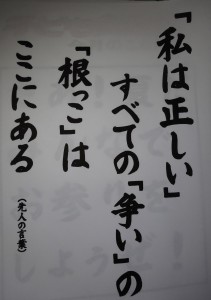 「私は正しい」
すべての「争い」の
「根っこ」は
ここにある
(先人の言葉)